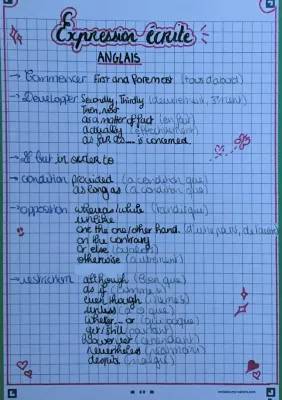 Expression écrite
ANGLAIS
→ Commencer First and Foremost (tout d'abord)
→ Developper Secondly, Thirdly (deuxièmement, 3ment)
Then, next
as a matter of fact (en fait)
actually (effectivement)
as far as.... is concerned
→ But in order to
→ condition provided (a condition que)
as long as (a condition que)
→ opposition whereas/while (tandis que)
unlike
one the one/other hand (d'une part, de l'autre)
on the contrary
or else
otherwise (autrement)
→ restriction although (bien que)
as if (comme si)
even though (même si)
unless
whether... or
yet/still (pourtant)
however (cependant)
nevertheless (néanmoins)
despite (malgré)